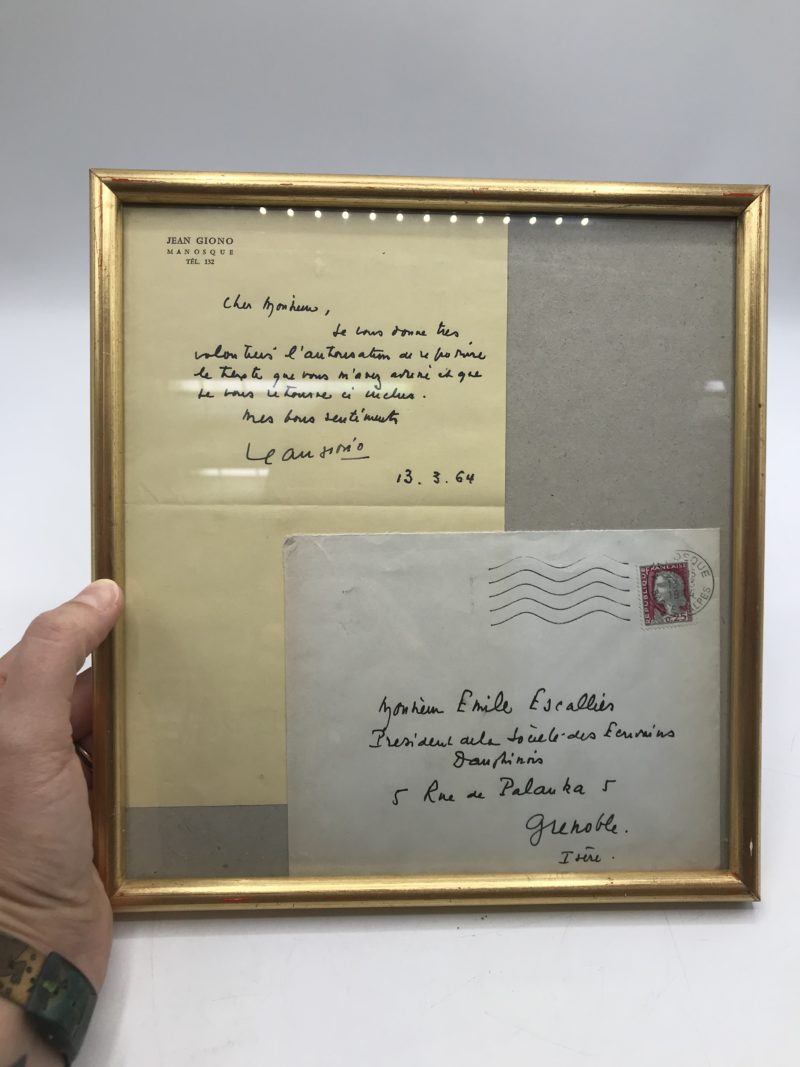 JEAN GIONO
MANOSQUE
TÉL. 132
Cher Monsieur,
Je vous donne très
volontiers l'autorisation de
le texte que vous m'avez adressé et que
je vous retourne ci inclus.
Mes bons sentiments
Jean Giono
13. 3. 64
REPUBLIQUE FRANÇAISE
0,25
Monsieur Emile Escallier
President de la Société des Ecrivains
Dauphinois
5 Rue de Palanka 5
Grenoble.
Isère.